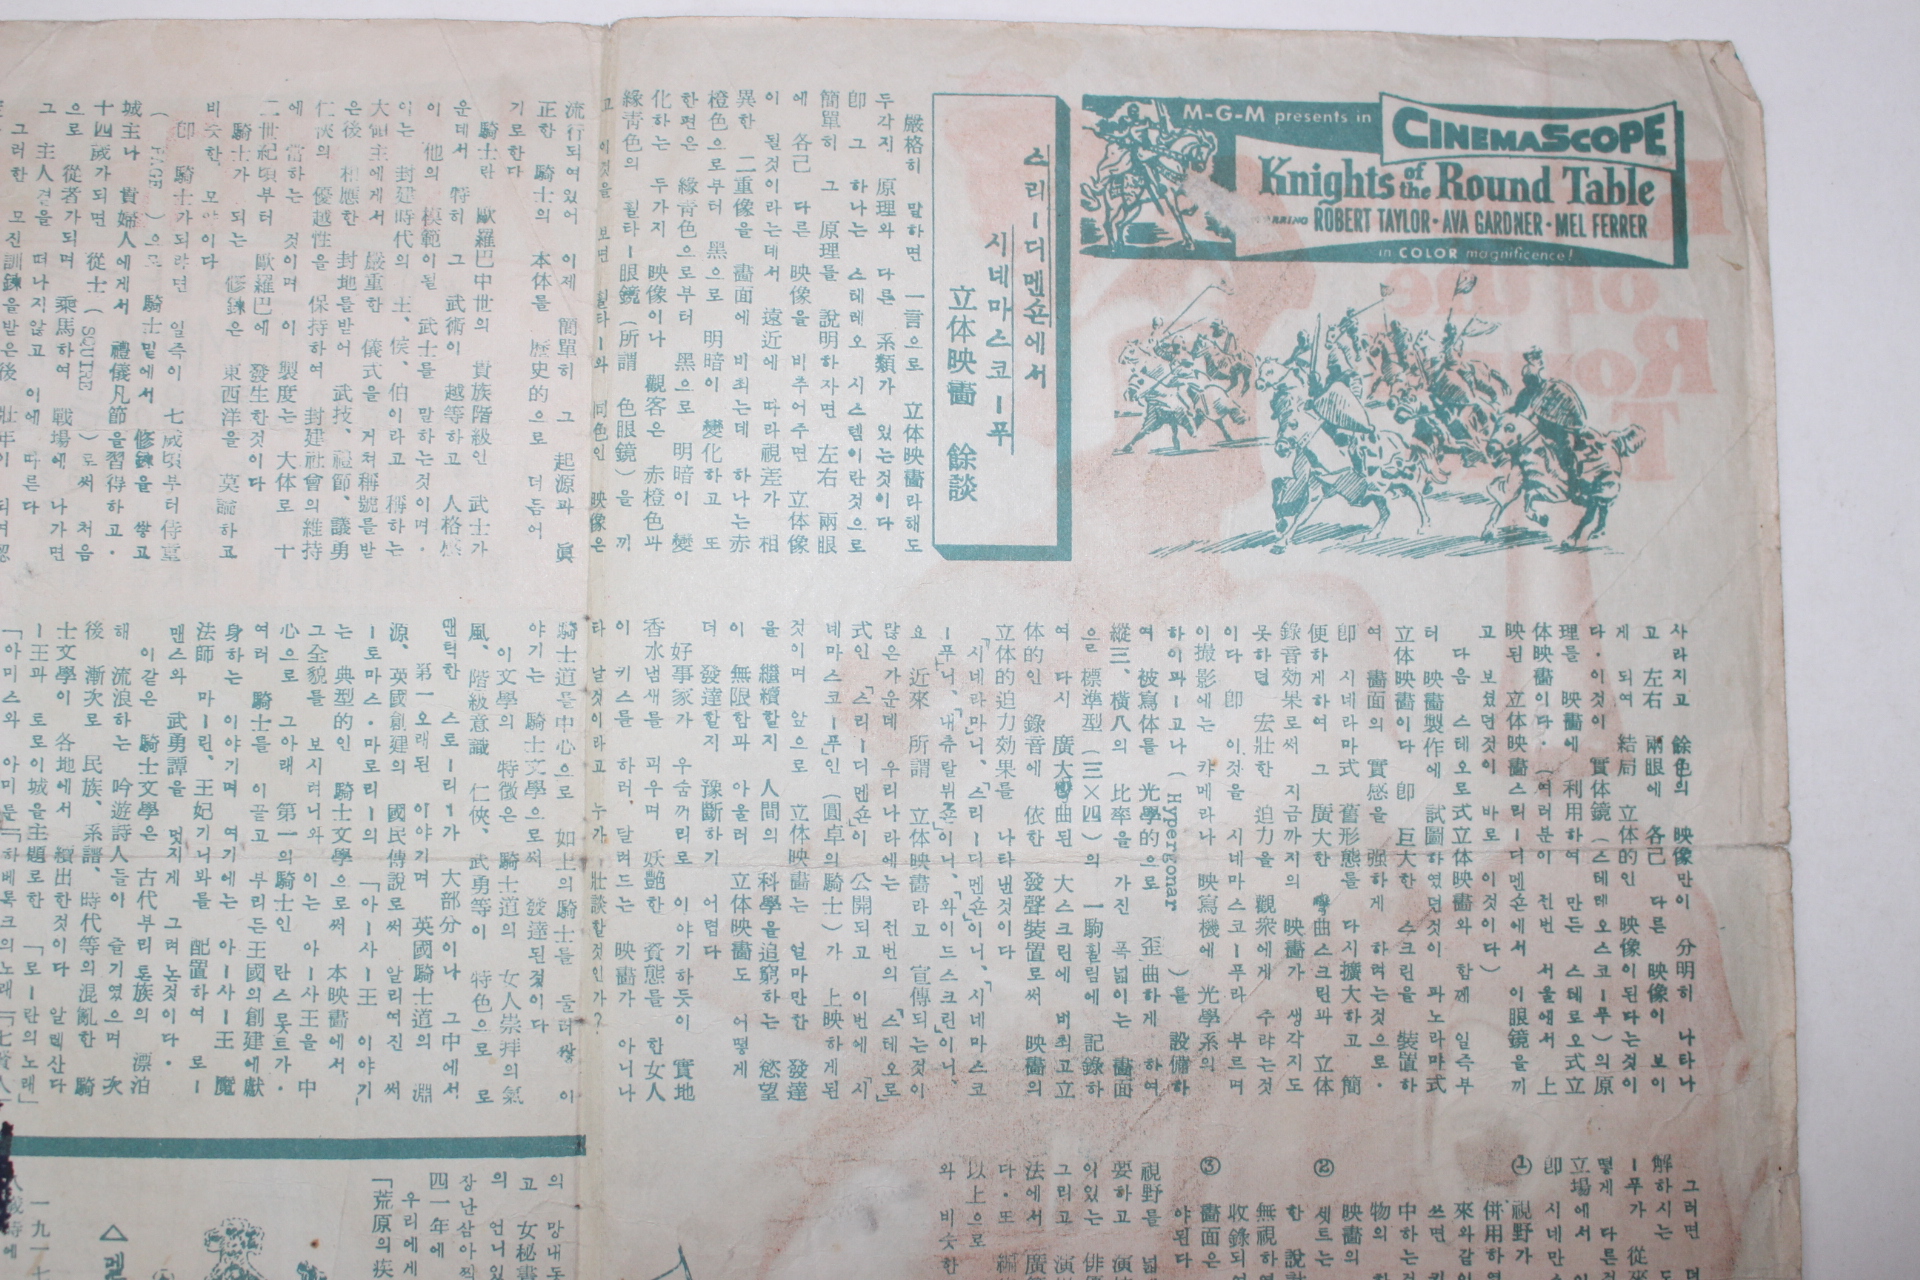 M-G-M presents in
CINEMASCOPE
Knights of the Round Table
ROBERT TAYLOR · AVA GARDNER · MEL FERRER
in COLOR magnificence!
스리ー디멘숀에서
시네마스코ー푸
立体映畵 餘談
嚴格히 말하면 一言으로 立体映畵라해도
두각지 原理와 다른 系類가 있는것이다
卽 그 하나는 스테레오 시스템이란것으로
簡單히 그 原理를 說明하자면 左右 兩眼
에 各己 다른 映像을 비추어주면 立体像
이 될것이라는데서 遠近에 따라視差가 相
異한 二重像을 畵面에 비최는데 하나는赤
橙色으로부터 黑으로 明暗이 變化하고 또
한편은 緣靑色으로부터 黑으로 明暗이 變
化하는 두가지 映像이나 觀客은 赤橙色과
緣靑色의 휠타ー眼鏡(所謂 色眼鏡)을 끼
고 이것을 보면 휠타ー와 同色인 映像은
사라지고 餘色의 映像만이 分明히 나타나
고 左右 兩眼에 各己 다른 映像이 보이
게 되여 結局 立体的인 映像이된다는것이
다·이것이 實体鏡(스테레오스코ー푸)의原
理를 映畵에 利用하여 만든 스테로오式立
体映畵이다·(여러분이 전번 서울에서 上
映된 立体映畵스리ー디멘숀에서 이眼鏡을끼
고 보셨던것이 바로 이것이다)
다음 스테오로式立体映畵와 함께 일즉부
터 映畵製作에 試圖하였던것이 파노라마式
立体映畵이다 卽 巨大한 스크린을 裝置하
여 畵面의 實感을 强하게 하려는것으로·
卽 시네라마式 舊形態를 다시擴大하고 簡
便하게하여 그 廣大한 彎曲스크린과 立体
錄音効果로써 지금까지의 映畵가 생각지도
못하던 宏壯한 迫力을 觀衆에게 주랴는것
이다 卽 이것을 시네마스코ー푸라 부르며
이撮影에는 캬메라나 映寫機에 光學系의
하이파ー고나(Hypergonar)를 設備하
여 被寫体를 光學的으로 歪曲하게 하여
縱三、橫八의 比率을 가진 폭넓이는 畵面
으로 標準型(三×四)의 一駒휠림에 記錄하
여 다시 廣大彎曲된 大스크린에 비최고立
体的인 錄音에 依한 發聲裝置로써 映畵의
立体的迫力効果를 나타낸것이다
「시네라마」니、「스리ー디멘숀」이니、「시네마스코
ー푸」니、「내츄랄뷔죤」이니、「와이드스크린」이니、
요 近來 所謂 立体映畵라고 宣傳되는것이
많은가운데 우리나라에는 전번의 「스테오로」
式인 「스리ー디멘숀」이 公開되고 이번에 「시
네마스코ー푸」인 (圓卓의騎士)가 上映하게된
것이며 앞으로 立体映畵는 얼마만한 發達
을 繼續할지 人間의 科學을追窮하는 慾望
이 無限함과 아울러 立体映畵도 어떻게
더 發達할지 豫斷하기 어렵다
好事家가 우숨꺼리로 이야기하듯이 實地
香水냄새를 피우며 妖艶한 資態를 한女人
이 키스를 하러、달려드는 映畵가 아니나
타 날것이라고 누가ー壯談할것인가?
그러면
解하시는
ー푸가 從來
떻게 다른
立場에서
①卽 시네마
視野가
倂用하
來와같이
쓰면
中하는
物의
②映畵의
쎗트는
한
無視하
收錄되
③畵面은
야된다
視野를
要하고
이있는
그리고
法에서
다·또
以上으로
와 비슷한
流行되여있어 이제 簡單히 그 起源과 眞
正한 騎士의 本体를 歷史的으로 더듬어
기로한다
騎士란 歐羅巴中世의 貴族階級인 武士가
운데서 特히 그 武術이 越等하고 人格
이 他의 模範이될 武士를 말하는것이며·
이는 封建時代의 王、侯、伯이라고 稱하는
大領主에게서 嚴重한 儀式을 거쳐稱號를받
은後 相應한 封地를받어 武技、禮節、議勇
仁俠의 優越性을 保持하여 封建社會의維持
에 當하는 것이며 이 製度는 大体로 十
二世紀頃부터 歐羅巴에 發生한것이다
騎士가 되는 修鍊은 東西洋을 莫論하고
비슷한 모양이다
卽 騎士가되랴면 일즉이 七歲頃부터侍童
(PAGE)으로 騎士밑에서 修鍊을 쌓고
城主나 貴婦人에게서 禮儀凡節을習得하고·
十四歲가되면 從士(SQUIRE)로써 처음
으로 從者가되며 乘馬하여 戰場에 나가면
그 主人곁을 떠나지않고 이에 따른다
그러한 모진訓鍊을받은後 壯年이 되여
騎士道를中心으로 如上의騎士를 둘러쌓 이
야기는 騎士文學으로써 發達된것이다
이文學의 特徵은 騎士道의 女人崇拜의氣
風、階級意識 仁俠、武勇等이 特色으로 로
맨턱한 스토ー리ー가 大部分이나 그中에서
第一오래된 이야기며 英國騎士道의 淵
源、英國創建의 國民傳說로써 알리여진 써
ー토마스·마로리ー의 「아ー사ー王 이야기」
는 典型的인 騎士文學으로써 本映畵에서
그全貌를 보시려니와 이는 아ー사王을 中
心으로 그아래 第一의騎士인 란스롯트가·
여러 騎士를 이끌고 부리든王國의創建에獻
身하는 이야기며 여기에는 아ー사ー王 魔
法師 마ー린、王妃기니봐를 配置하여 로ー
맨스와 武勇譚을 멋지게 그려논것이다·
이같은 騎士文學은 古代부리톤族의 漂泊
해 流浪하는 吟遊詩人들이 즐기였으며 次
後 漸次로 民族、系譜、時代等의混亂한 騎
士文學이 各地에서 續出한것이다 알렉산다
ー王과 토로이城을主題로한 「로ー란의노래」
「아미스와 아미를」「하베록크의노래」「七賢人」
의 망내동
고 女秘書
의 언니있
장난삼아찍
四一年에
우리에게
「荒原의疾
△멜
一九一七